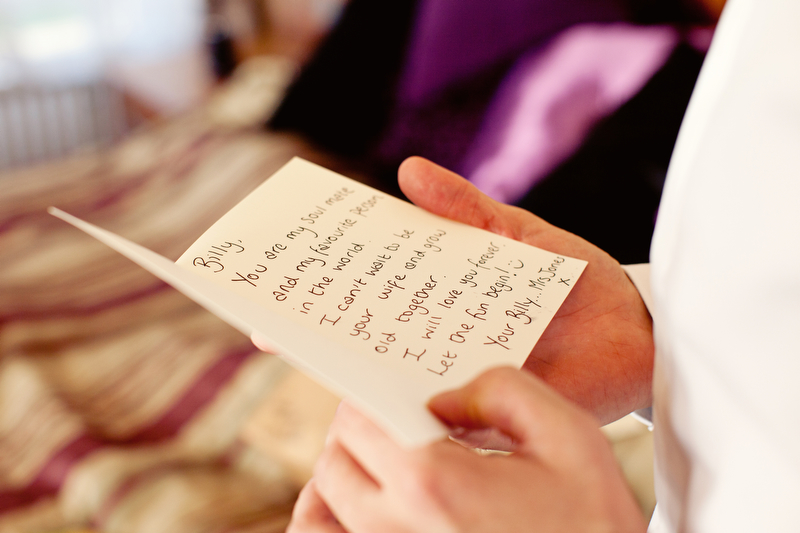 Billy,
You are my soul mate
and my favourite person
in the world.
I can't wait to be
your wife and grow
old together.
I will love you forever.
Let the fun begin! :)
Your Billy... Mrs Jones
x